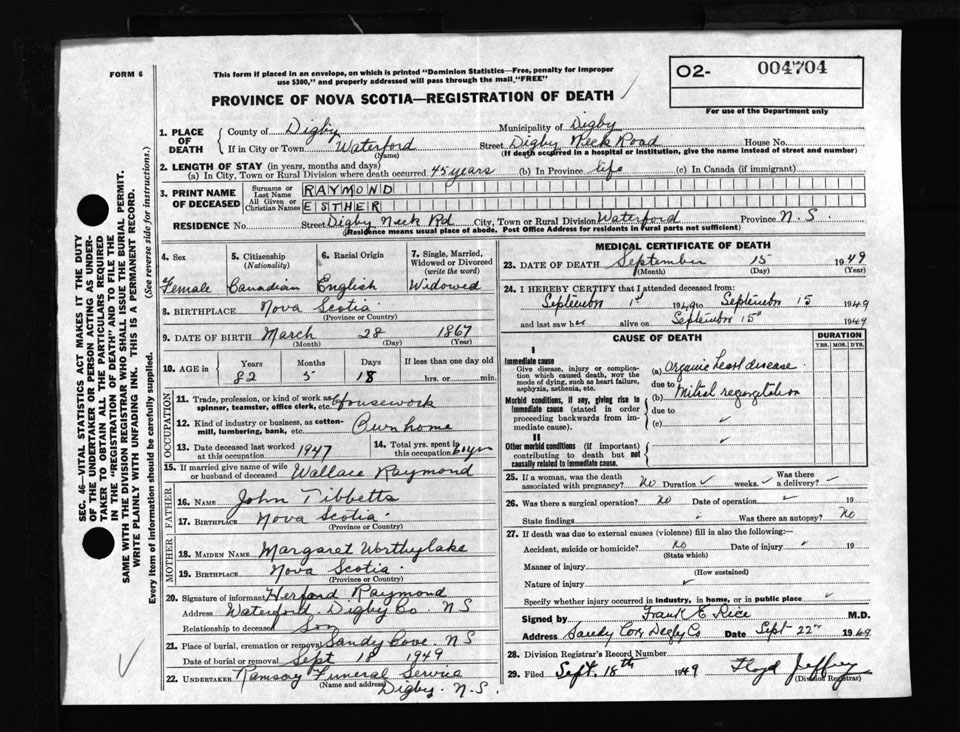 FORM 6
This form if placed in an envelope, on which is printed "Dominion Statistics—Free, penalty for improper
use $300," and properly addressed will pass through the mail "FREE"
PROVINCE OF NOVA SCOTIA—REGISTRATION OF DEATH
O2- 004704
For use of the Department only
SEC. 46—VITAL STATISTICS ACT MAKES IT THE DUTY
OF THE UNDERTAKER OR PERSON ACTING AS UNDER-
TAKER TO OBTAIN ALL THE PARTICULARS REQUIRED
IN THE "REGISTRATION OF DEATH" AND TO FILE THE
SAME WITH THE DIVISION REGISTRAR WHO SHALL ISSUE THE BURIAL PERMIT.
WRITE PLAINLY WITH UNFADING INK. THIS IS A PERMANENT RECORD.
Every item of information should be carefully supplied. (See reverse side for instructions.)
1. PLACE OF DEATH
County of Digby Municipality of Digby
If in City or Town Waterford Street Digby Neck Road House No.
(Name) (If death occurred in a hospital or institution, give the name instead of street and number)
2. LENGTH OF STAY (in years, months and days)
(a) In City, Town or Rural Division where death occurred 45 years (b) In Province life (c) In Canada (if immigrant)
3. PRINT NAME OF DECEASED
Surname or Last Name RAYMOND
All Given or Christian Names ESTHER
RESIDENCE No. Street Digby Neck Rd City, Town or Rural Division Waterford Province N.S.
(Residence means usual place of abode. Post Office Address for residents in rural parts not sufficient)
4. Sex 5. Citizenship (Nationality) 6. Racial Origin 7. Single, Married, Widowed or Divorced (write the word)
Female Canadian English Widowed
8. BIRTHPLACE Nova Scotia
(Province or Country)
9. DATE OF BIRTH March 28 1867
(Month) (Day) (Year)
10. AGE in Years Months Days If less than one day old
82 5 18 hrs. or min.
OCCUPATION
11. Trade, profession, or kind of work as spinner, teamster, office clerk, etc. Housework
12. Kind of industry or business, as cotton-mill, lumbering, bank, etc. Own home
13. Date deceased last worked at this occupation 1947 14. Total yrs. spent in this occupation 61 yrs
15. If married give name of wife or husband of deceased Wallace Raymond
FATHER
16. NAME John Tibbetts
17. BIRTHPLACE Nova Scotia
(Province or Country)
MOTHER
18. MAIDEN NAME Margaret Worthylake
19. BIRTHPLACE Nova Scotia
(Province or Country)
20. Signature of informant Raymond
Address Waterford. Digby Co N S
Relationship to deceased Son
21. Place of burial, cremation or removal Sandy Cove. N S
Date of burial or removal Sept 18 1949
22. UNDERTAKER Ramsay Funeral Service
(Name and address) Digby. N.S.
MEDICAL CERTIFICATE OF DEATH
23. DATE OF DEATH September 15 1949
(Month) (Day) (Year)
24. I HEREBY CERTIFY that I attended deceased from:
September 1st 1949 to September 15 1949
and last saw her alive on September 15th 1949
CAUSE OF DEATH DURATION
YRS. MOS. DYS.
I
Immediate cause
Give disease, injury or complication which caused death, NOT the mode of dying, such as heart failure, asphyxia, asthenia, etc.
(a) Organic heart disease
due to
Morbid conditions, if any, giving rise to immediate cause (stated in order proceeding backwards from immediate cause).
(b) Mitral regurgitation
due to
(c)
II
Other morbid conditions (if important) contributing to death but not causally related to immediate cause.
25. If a woman, was the death associated with pregnancy? No Duration weeks. Was there a delivery?
26. Was there a surgical operation? No Date of operation 19
State findings Was there an autopsy? No
27. If death was due to external causes (violence) fill in also the following:—
Accident, suicide or homicide? No Date of injury 19
(State which)
Manner of injury
(How sustained)
Nature of injury
Specify whether injury occurred in industry, in home, or in public place
Signed by Frank E Rice M.D.
Address Sandy Cove Digby Co Date Sept 22nd 1949
28. Division Registrar's Record Number
29. Filed Sept. 18th 1949 Floyd Jeffrey
(Division Registrar)